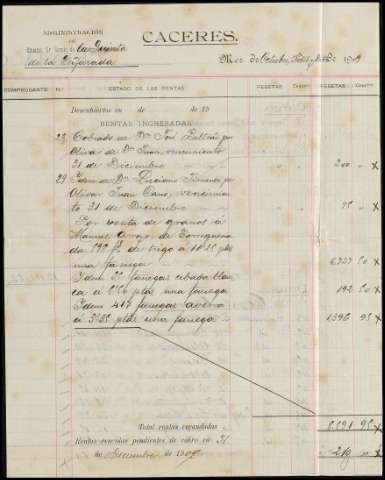 ADMINISTRACIÓN
CACERES.
DEL
Excmo. Sr. Conde de la Quinta
de la Enjarada
Mes de Octubre, Nobre y Dbre de 1909
COMPROBANTE N.º ESTADO DE LAS RENTAS PESETAS Cents. PESETAS Cents.
Descubiertos en de de 19
RENTAS INGRESADAS
28 Cobrado de Dn José Beltrán por
Oliva de Dn Juan, vencimiento
31 de Diciembre 200 " x
29 Idem de Dn Luciano Jiménez por
Olivar Juan Cano, vencimien
to 31 de Diciembre 75 " x
Por venta de granos á
Manuel Arroyo de Torrequema
da 598 fs de trigo á 11'25 ptas
una fanega 6,727 50 x
Idem 35 fanegas cebada blan
ca á 5'50 ptas una fanega 192 50 x
Idem 417 fanegas avena
á 3'35 ptas una fanega 1396 95 x
Total rentas recaudadas 8591 95 x
Rentas vencidas pendientes de cobro en 31
de Diciembre de 1909 x